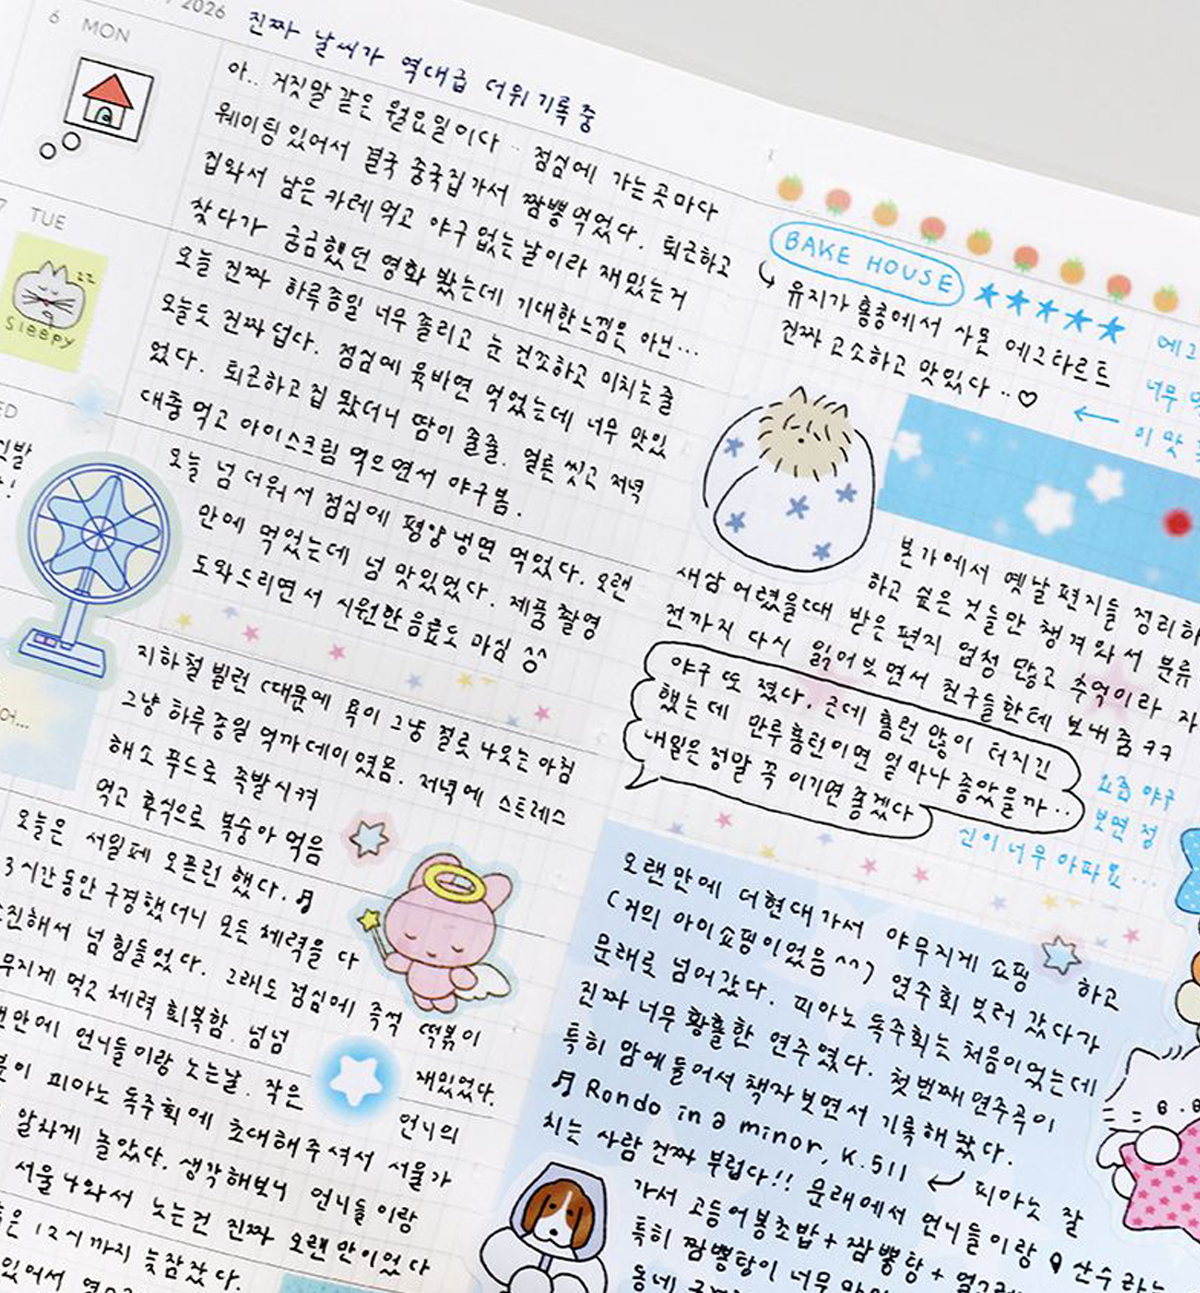 2026 진짜 날씨가 역대급 더위 기록중
6 MON
아.. 거짓말 같은 월요일이다.. 점심에 가는곳마다
웨이팅 있어서 결국 중국집가서 짬뽕먹었다. 퇴근하고
집와서 남은 카레먹고 야구없는날이라 재밌는거
찾다가 궁금했던 영화 봤는데 기대한느낌은 아닌...
7 TUE
sleepy
오늘 진짜 하루종일 너무 졸리고 눈 건조하고 미치는줄
오늘도 진짜 덥다. 점심에 육비면 먹었는데 너무 맛있
었다. 퇴근하고 집 왔더니 땀이 줄줄. 얼른 씻고 저녁
대충 먹고 아이스크림 먹으면서 야구봄.
ED
오늘 넘 더워서 점심에 평양냉면 먹었다. 오랜
만에 먹었는데 넘 맛있었다. 제품 촬영
도와드리면서 시원한음료도 마심 ^^
지하철 빌런 때문에 욕이 그냥 절로 나오는 아침
그냥 하루종일 억까데이였몸. 저녁에 스트레스
해소 푸드로 족발시켜
먹고 후식으로 복숭아 먹음
오늘은 서일페 오픈런 했다.♬
3시간동안 구경했더니 모든 체력을 다
진해서 넘 힘들었다. 그래도 점심에 즉석 떡볶이
무지게 먹고 체력 회복함. 넘넘
재밌었다.
만에 언니들이랑 노는날. 작은 언니의
이 피아노 독주회에 초대해주셔서 서울가
알차게 놀았다. 생각해보니 언니들이랑
서울나와서 노는건 진짜 오랜만이었다
은 12시까지 늦잠잤다.
있어서
BAKE HOUSE ★★★★★
유지가 홍콩에서 사온 에그타르트
진짜 고소하고 맛있다..♡
에그
너무 맛
이 맛
본가에서 옛날편지들 정리하
하고 싶은 것들만 챙겨와서 분류
새삼 어렸을때 받은 편지 엄청 많고 추억이라 자
전까지 다시 읽어보면서 친구들한테 보내줌 ㅋㅋ
야구 또 졌다. 근데 홈런 많이 터지긴
했는데 만루홈런이면 얼마나 좋았을까..
내일은정말 꼭 이기면 좋겠다
요즘 야구
보면 정
신이 너무 아파요...
오랜만에 더현대가서 야무지게 쇼핑 하고
(거의 아이쇼핑이었음^^) 연주회 보러 갔다가
문래로 넘어갔다. 피아노 독주회는 처음이었는데
진짜 너무 황홀한 연주였다. 첫번째연주곡이
특히 맘에들어서 책자보면서 기록해놨다.
♬ Rondo in a minor, K.511
피아노 잘
치는 사람 진짜 부럽다!! 문래에서 언니들이랑 산수라는
가서 고등어봉초밥+짬뽕탕+
특히 짬뽕탕이 너무
동네